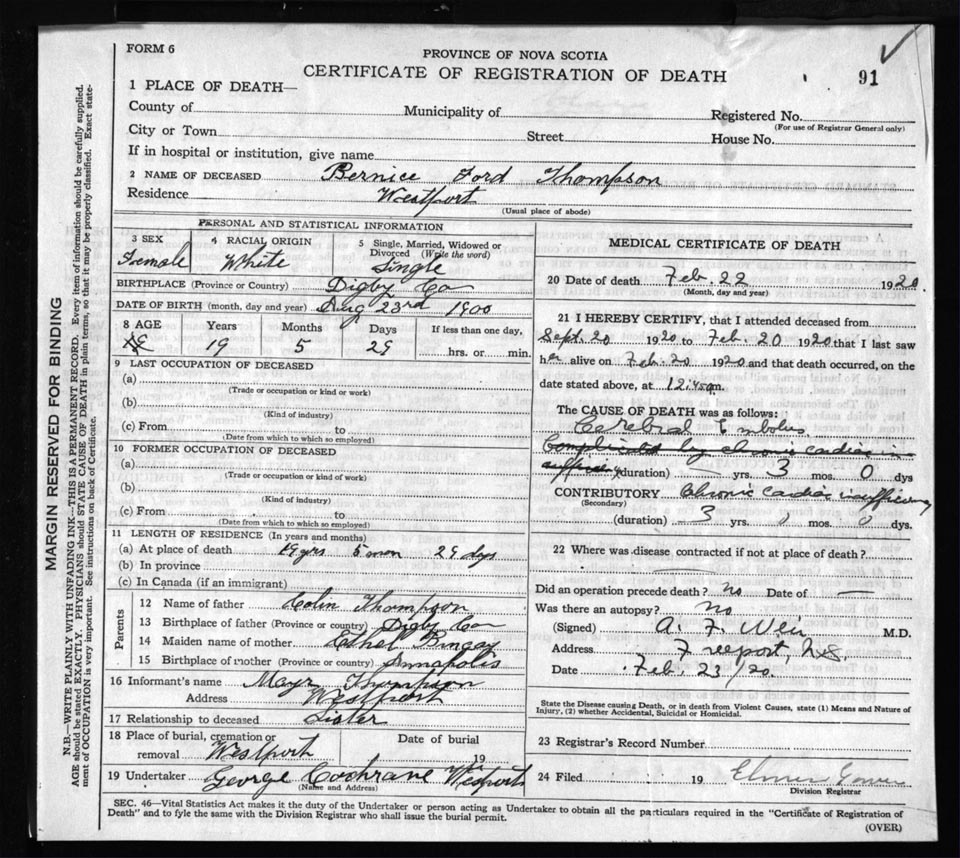 FORM 6
PROVINCE OF NOVA SCOTIA
CERTIFICATE OF REGISTRATION OF DEATH
91
1 PLACE OF DEATH—
County of Municipality of Registered No.
(For use of Registrar General only)
City or Town Street House No.
If in hospital or institution, give name
2 NAME OF DECEASED Bernice Ford Thompson
Residence Westport
(Usual place of abode)
PERSONAL AND STATISTICAL INFORMATION
3 SEX Female
4 RACIAL ORIGIN White
5 Single, Married, Widowed or Divorced (Write the word) Single
BIRTHPLACE (Province or Country) Digby Co
DATE OF BIRTH (month, day and year) Aug 23rd 1900
8 AGE Years Months Days If less than one day,
19 5 29 hrs. or min.
9 LAST OCCUPATION OF DECEASED
(a)
(Trade or occupation or kind or work)
(b)
(Kind of industry)
(c) From to
(Date from which to which so employed)
10 FORMER OCCUPATION OF DECEASED
(a)
(Trade or occupation or kind of work)
(b)
(Kind of industry)
(c) From to
(Date from which to which so employed)
11 LENGTH OF RESIDENCE (In years and months)
(a) At place of death 19 yrs 5 mon 29 days
(b) In province
(c) In Canada (if an immigrant)
Parents
12 Name of father Colin Thompson
13 Birthplace of father (Province or country) Digby Co
14 Maiden name of mother Ethel Bingay
15 Birthplace of mother (Province or country) Annapolis
16 Informant's name Thompson
Address Westport
17 Relationship to deceased Sister
18 Place of burial, cremation or removal Westport
Date of burial 19
19 Undertaker George Cochrane Westport
(Name and Address)
MEDICAL CERTIFICATE OF DEATH
20 Date of death Feb. 22 1920.
(Month, day and year)
21 I HEREBY CERTIFY, that I attended deceased from
Sept. 20 1920 to Feb. 20 1920 that I last saw
her alive on Feb. 20 1920 and that death occurred, on the
date stated above, at m.
The CAUSE OF DEATH was as follows:
Cerebral Embolus
Complicated by chronic cardiac in
sufficiency (duration) yrs. 3 mos. 0 dys
CONTRIBUTORY Chronic cardiac insufficiency
(Secondary)
(duration) 3 yrs. mos. 0 dys.
22 Where was disease contracted if not at place of death?
Did an operation precede death? no Date of —
Was there an autopsy? no
(Signed) A. F. Weir M.D.
Address Freeport, N.S.
Date Feb. 23/20.
State the Disease causing Death, or in death from Violent Causes, state (1) Means and Nature of
Injury, (2) whether Accidental, Suicidal or Homicidal.
23 Registrar's Record Number
24 Filed 19 Elmer
Division Registrar
SEC. 46—Vital Statistics Act makes it the duty of the Undertaker or person acting as Undertaker to obtain all the particulars required in the "Certificate of Registration of
Death" and to fyle the same with the Division Registrar who shall issue the burial permit.
(OVER)
MARGIN RESERVED FOR BINDING
N.B.—WRITE PLAINLY WITH UNFADING INK—THIS IS A PERMANENT RECORD. Every item of information should be carefully supplied.
AGE should be stated EXACTLY. PHYSICIANS should STATE CAUSE OF DEATH in plain terms, so that it may be properly classified. Exact state-
ment of OCCUPATION is very important. See instructions on back of Certificate.